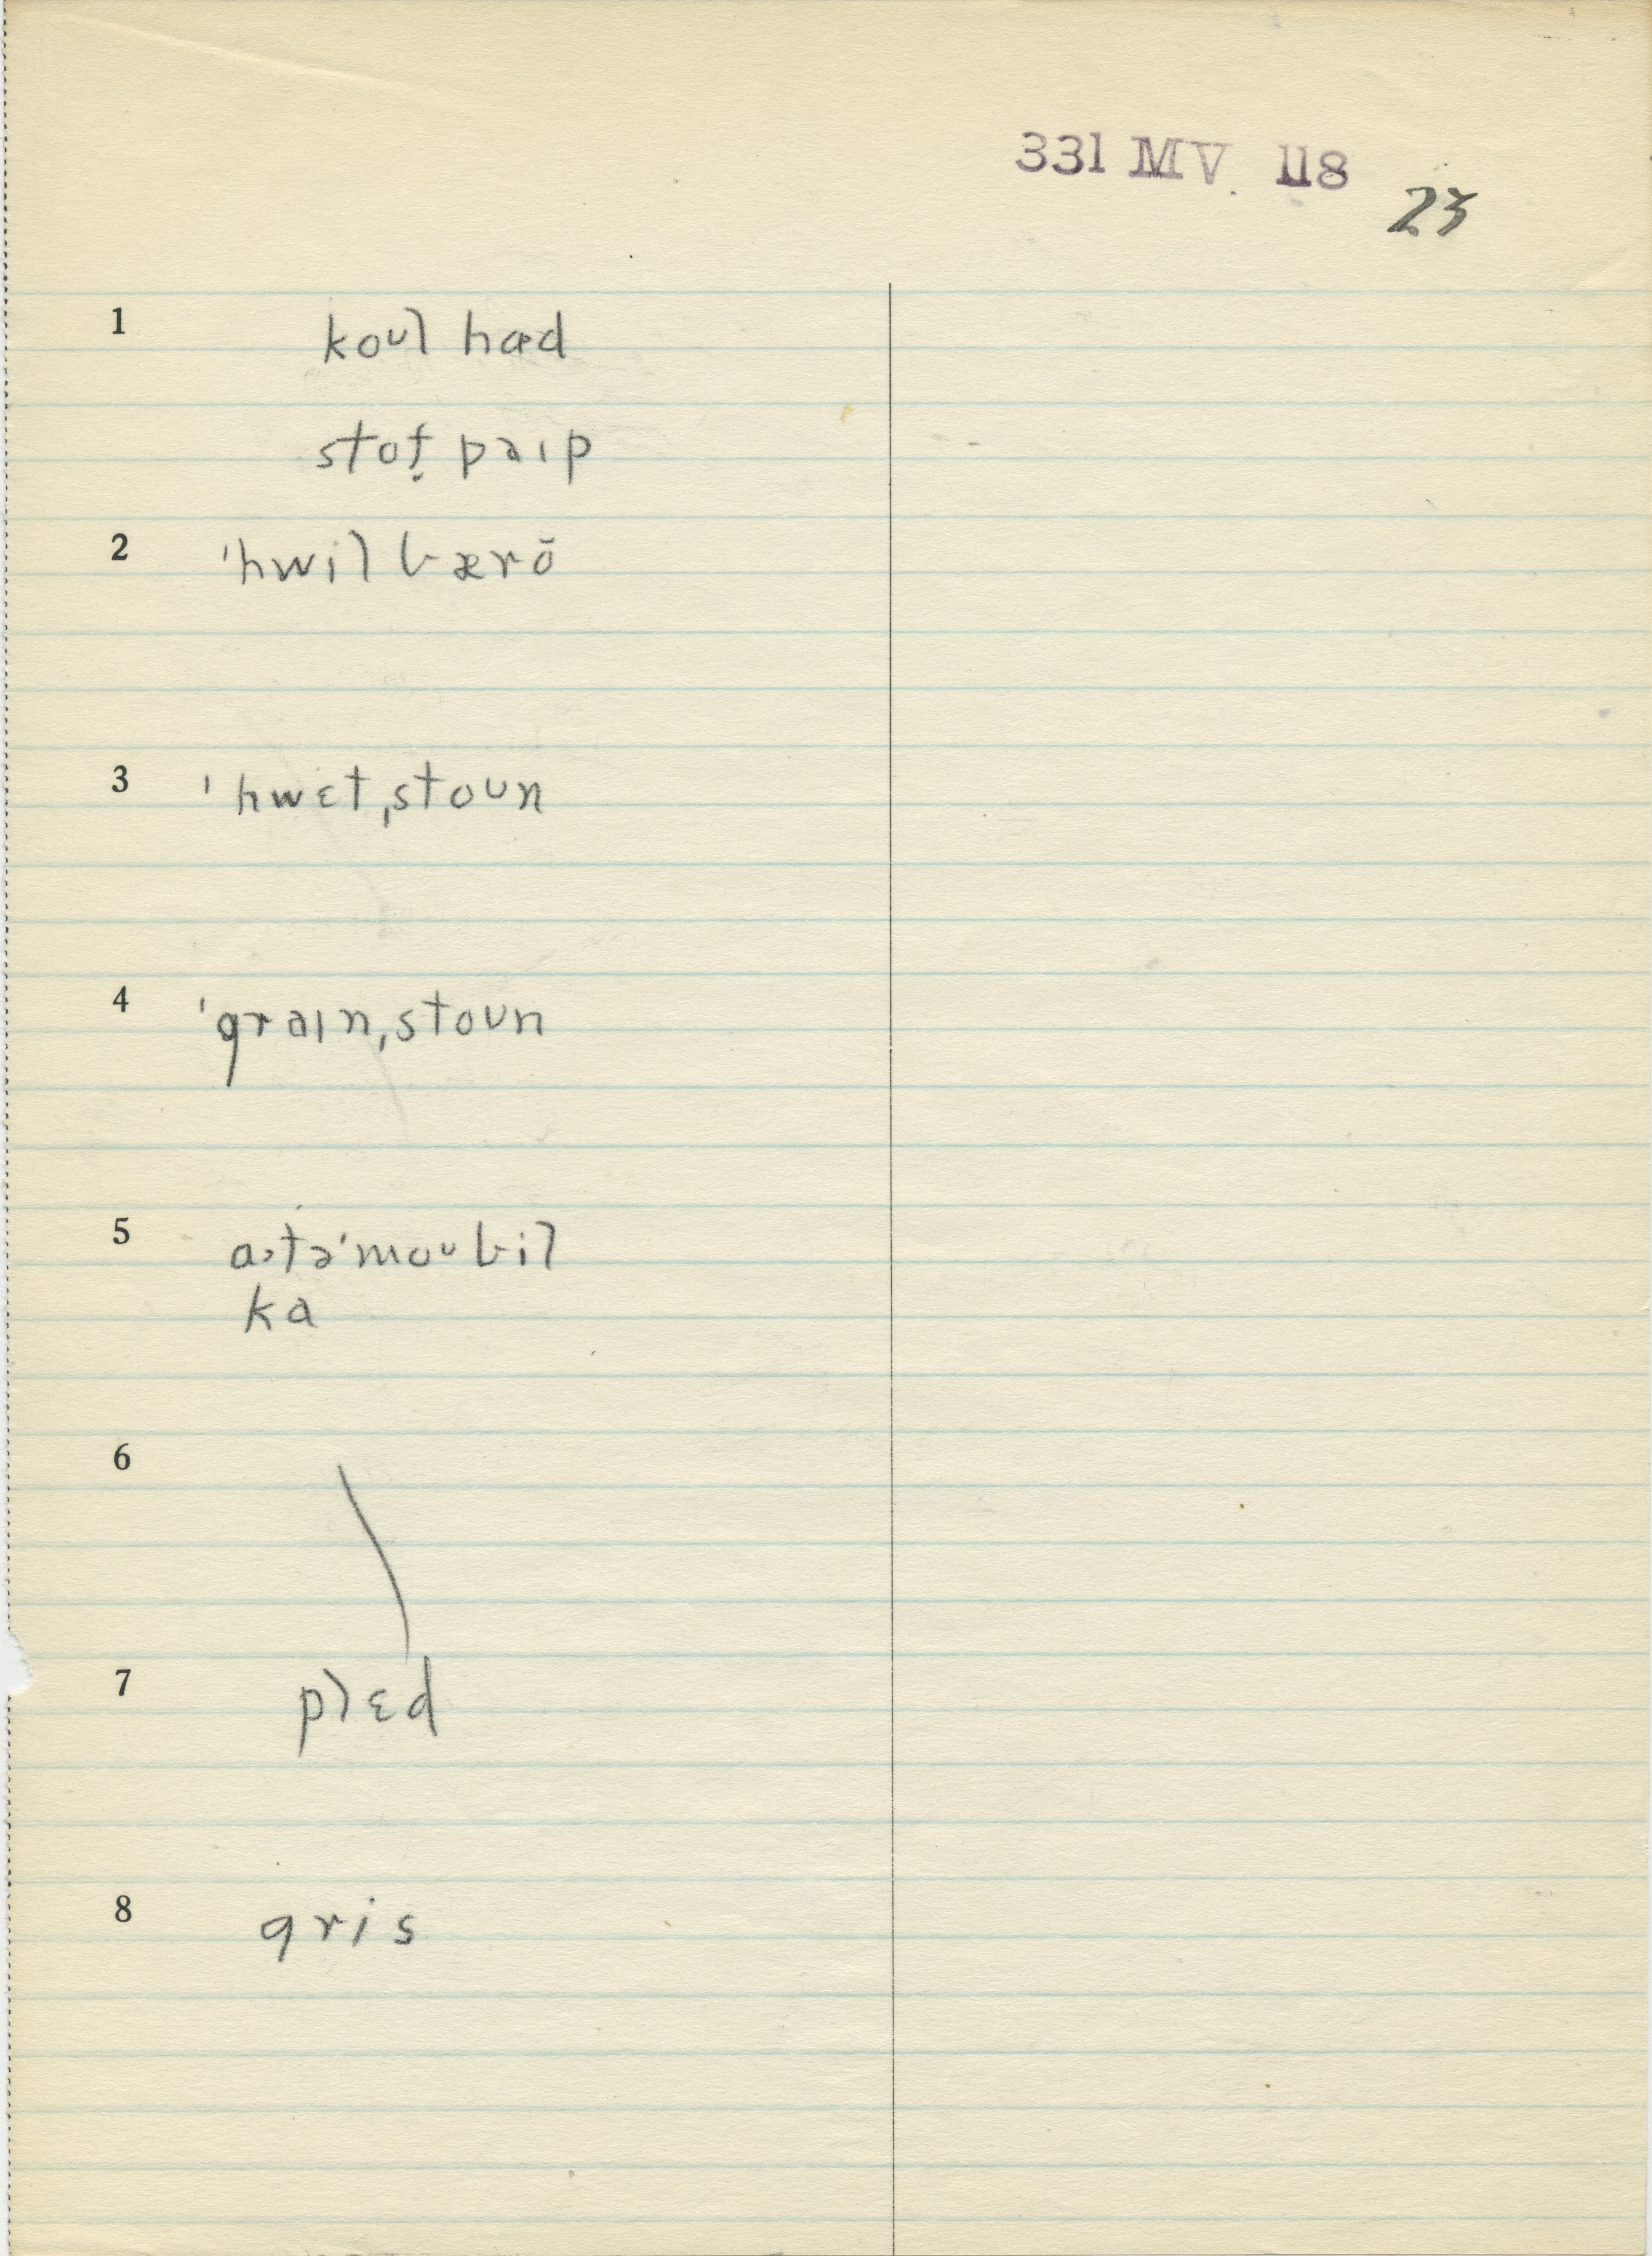 331 MV 118
23
1 koʊl hɑd
stof̣ pɑɪp
2 ˈhwil bærō
3 ˈhwɛtˌstoʊn
4 ˈgraɪnˌstoʊn
5 ɑɔtəˈmoʊbil
ka
6
7 plɛd
8 gris